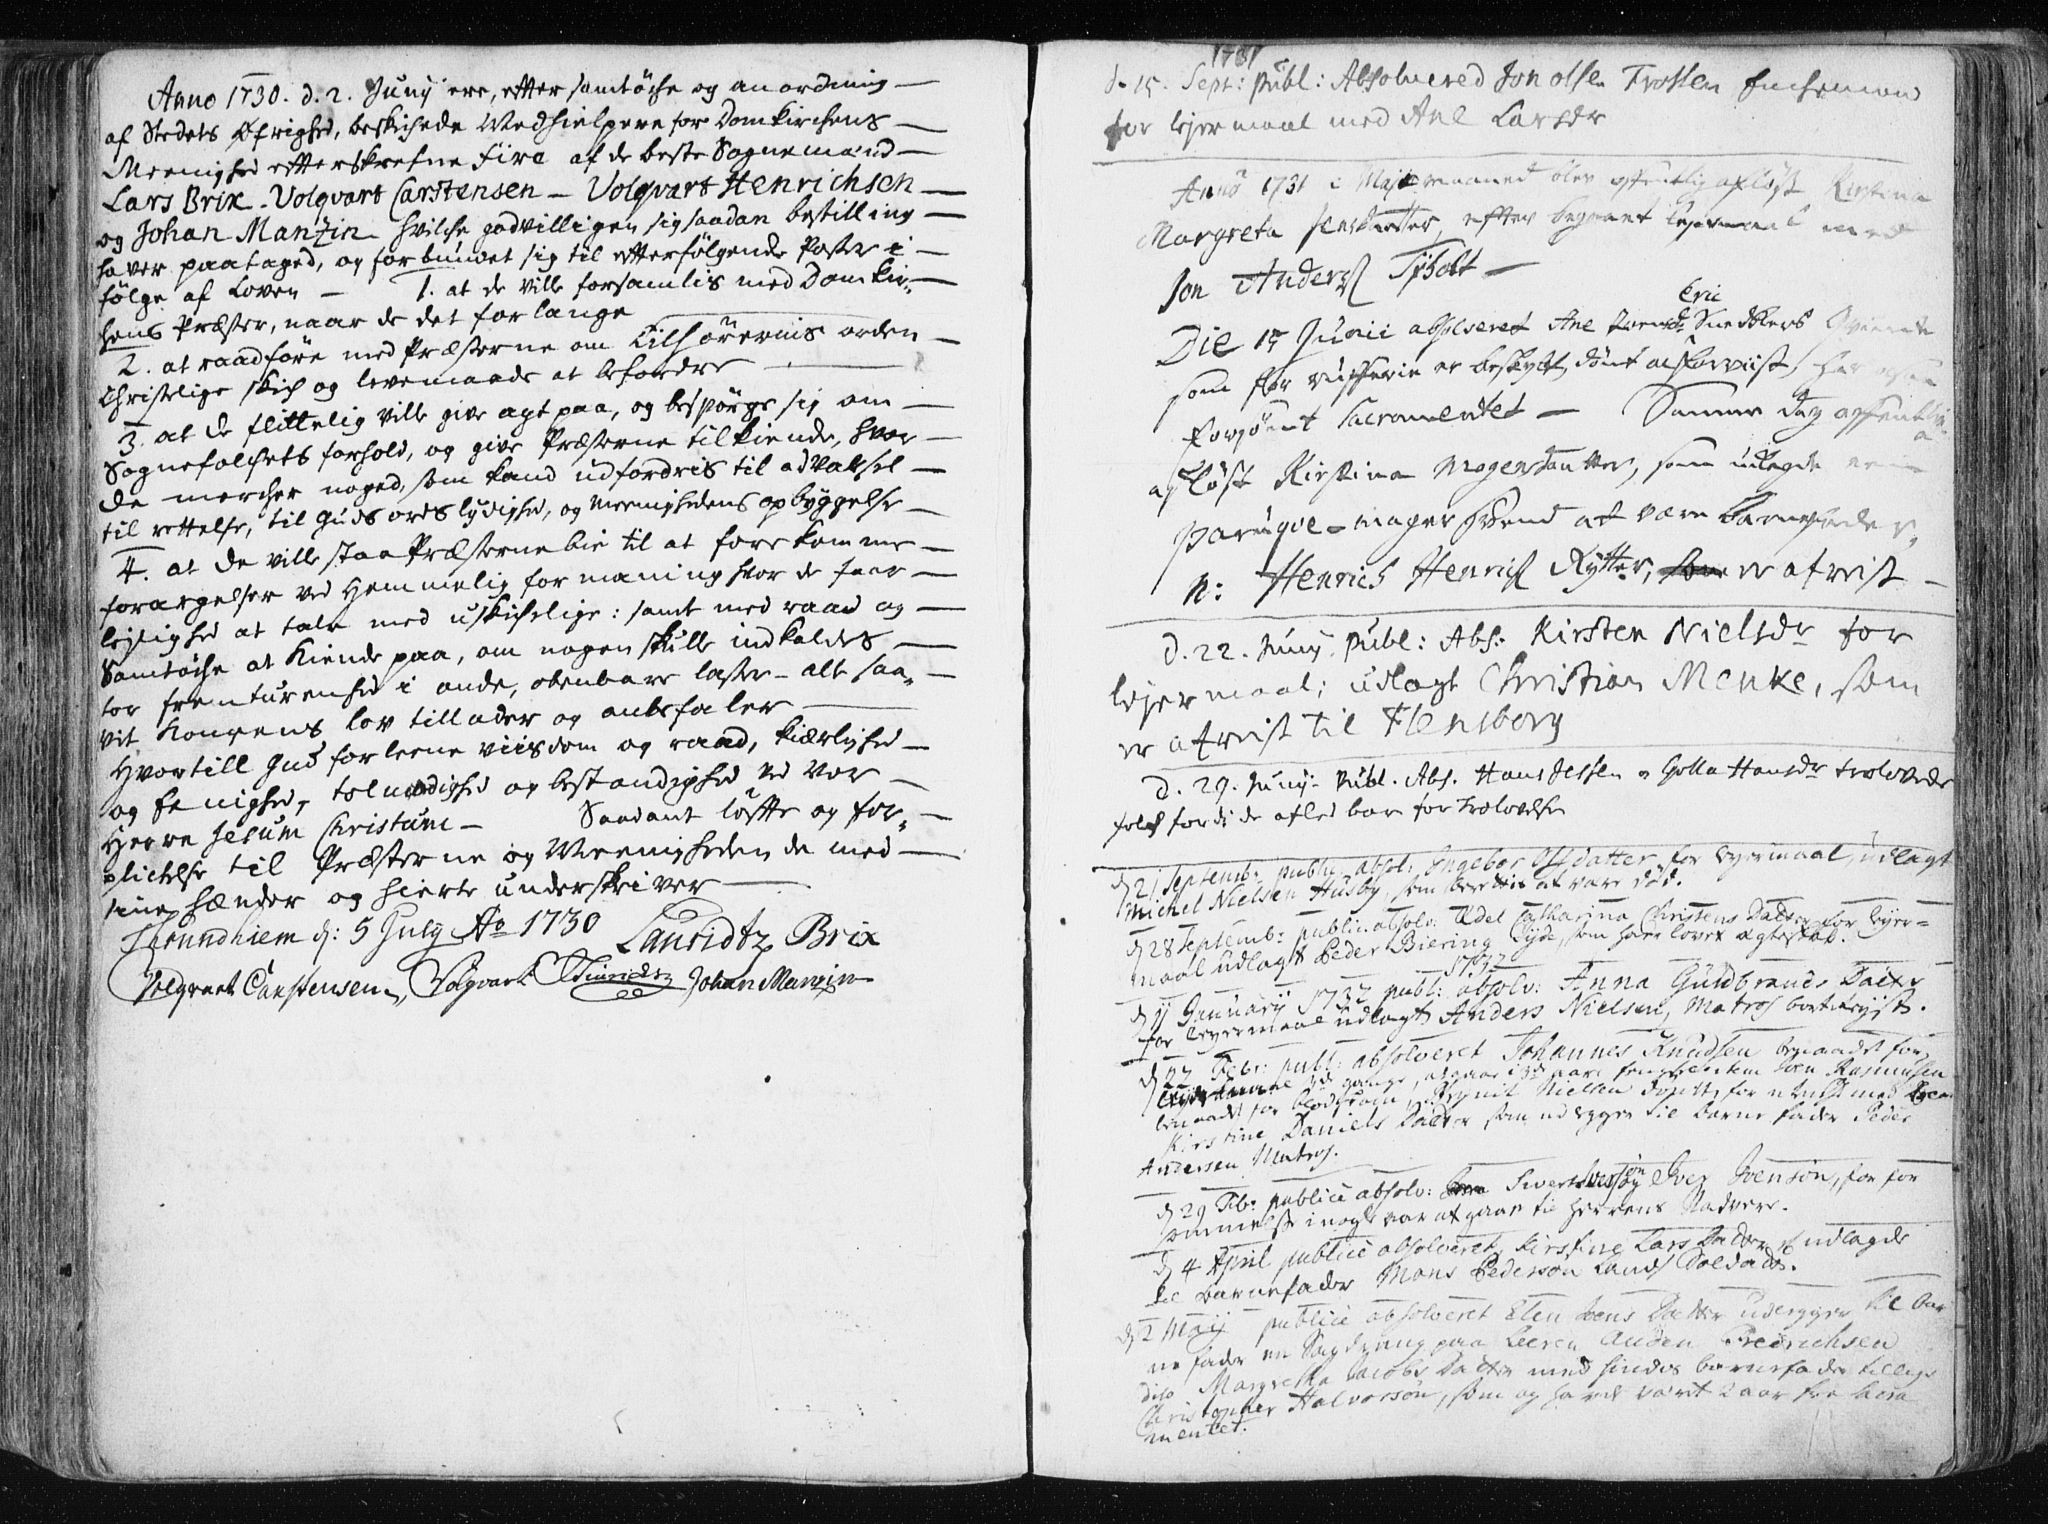 Anno 1730. d. 2. Junij ere, efter samtöche og anordning
af Stedets Öfrighed, beskichede Medhielpere for Domkirchens
Meenighed efterskrefne Fire af de beste Sognemænd
Lars Brix - Volqvart Carstensen - Volqvart Henrichsen
og Johan Manzin hvilche godvilligen sig saadan bestilling
haver paataged, og forbundet sig til efterfölgende Poster i
fölge af Loven - 1. at de ville forsamlis med Domkir-
chens Præster, naar de det forlange
2. at raadföre med Præsterne om Tilhörernis orden
Christelige skich og levemaade at befordre
3. at de flittelig ville give agt paa, og bespörge sig om
Sognefolchets forhold, og give Præsterne tilkiende, hvor
de mercher noged, som kand udfordris til advarsel
til rettelse, til Guds ords lydighed, og meenighedens opbyggelse
4. at de ville staa Præsterne bie til at forekomme
forargelser ved hemmelig formaning hvor de faar
lejlighed at tale med uskichelige: samt med raad og
Samtöche at kiende paa, om nogen skulle indkaldes
for fremturenhed i onde, obenbare laster - alt saa
vit Kongens lov tillader og anbefaler
Hvortill Gud forleene viisdom og raad, kiærlighed
og Eenighed, tolmodighed og bestandighed ved Vor
Herre Jesum Christum - Saadant löfte og for-
plictelse til Præsterne og Meenigheden de med
sine hænder og hierte underskriver
Thrundhiem d: 5 July Ao 1730 Lauridtz Brix
Volqvart Carstensen, Volqvart Hinrichsen Johan Manzin
1731
d. 15. Sept: publ: Absolvered Jon Olsen Trosten Enchemand
for lejermaal med Ane Larsdr
Anno 1731 i Maji maaned blev offentlig aflöst Kirstina
Margreta Jensdatter, efter begaaet lejermaal med
Jon Anders Tybolt
Eric
Die 15 Junii absolveret Ane Svends Snedkers Qvinde
som for tufferie er beskyldt, dömt og forviist, har
forsömt Sacramentet - Samme dag offentlig
aflöst Kirstina Mogensdatter, som udlagde
Paruqve-mager Svend at være Barnefader
n: Henrich Henrich Rytter, er afreist
d. 22. Junij. publ: Abs: Kirsten Nielsdr for
lejermaal; udlagt Christian Menke, som
er afreist til Flensborg
d. 29. Junij. Publ. Abs. Hans Jessen o Golla Hansdr trolovede
folch fordi de afled barn for trolovelse
d 21 Septemb: publ: absol: Ingebor Olsdatter for leyermaal, udlagt
Michel Nielsen Husby, som berettis at være död.
d 28 Septemb: publice absolv: Edel Catharina Christens Datter for leyer=
maal udlagt Peder Biering Clyde, som har lovet ægteskab.
1732
d 11 Januarij 1732 publ: absolv: Anna Gundbrands Datter
for leyermaal udlagt Anders Nielsen, Matros bortreyst.
d 22 Febr: publ: absolveret Johannes Knudsen benaadet for
leyermaal gange, aar Rasmusen
benaadet for blodskam, Nielsen for
Kirstine Daniels Datter som udlegger til barne fader Peder
Andersen Matros.
d 29 Febr publice absolv: Sivert Iversön Iver Svensön, for for
sömmelse i nogle aar at gaae til Herrens Nadvere.
d 4 April publice absolveret Kirstine Lars Datter, udlagde
til Barnefader Mons Pedersön Lands Soldat.
d 2 Maij publice absolveret Elen Jens Datter udlegger til bar
ne fader en Sapdreng paa Leeren Anden Fredrichsen
dito Margretha Jacobs Datter med hindes barnefader tillige
Christopher Halvorsön, som og har været 2 aar fra Sacra
mentet.